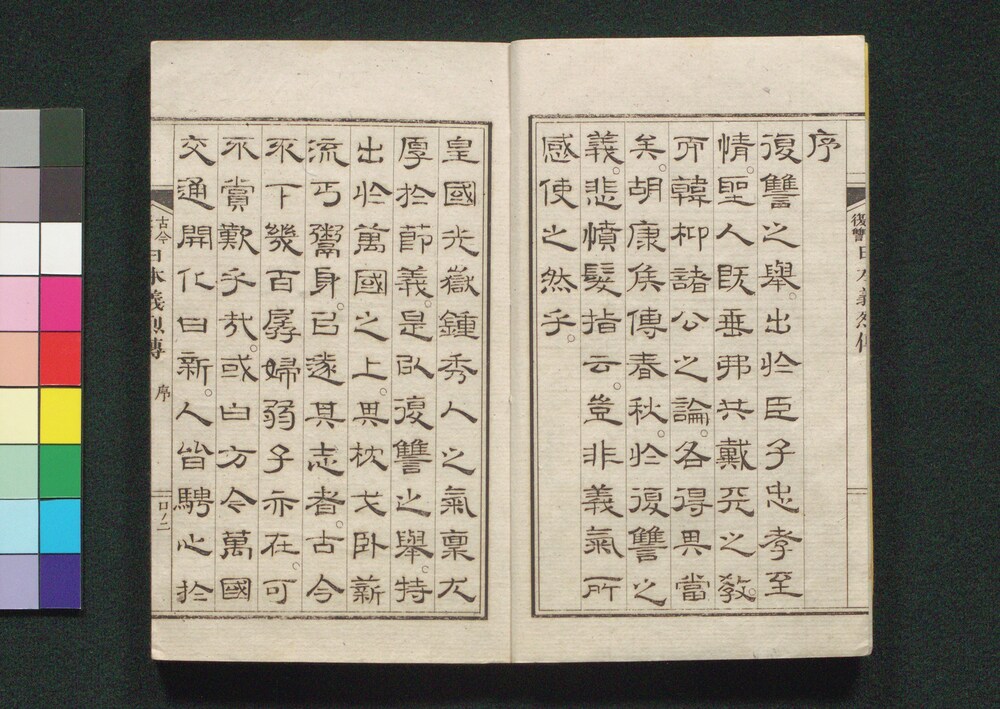 序
復讐之舉。出於臣子忠孝至
情。聖人既垂弗共戴天之教。
而韓柳諸公之論。各得其當
矣。胡康矦傳春秋。於復讐之
義。悲憤髮指云。豈非義氣所
感使之然乎。
皇國光嶽鍾秀。人之氣稟尤
厚於節義。是以復讐之舉。特
出於萬國之上。其枕戈臥薪
流丐鬻身。已遂其志者。古今
不下幾百。孱婦弱子亦在。可
不賞歎乎哉。或曰方今萬國
交通開化日新。人皆騁心於
復讐
古今
日本義烈傳
序
口ノ二